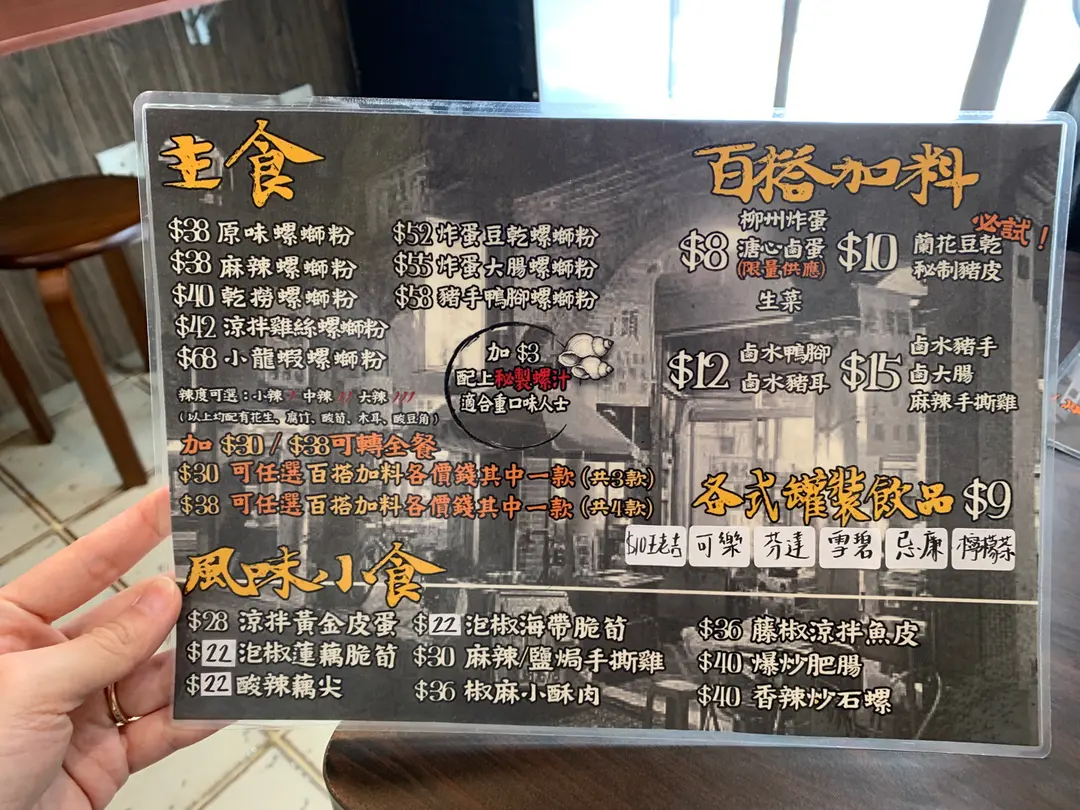 主食
$38 原味螺螄粉
$38 麻辣螺螄粉
$40 乾撈螺螄粉
$42 涼拌雞絲螺螄粉
$68 小龍蝦螺螄粉
$52 炸蛋豆乾螺螄粉
$55 炸蛋大腸螺螄粉
$58 豬手鴨腳螺螄粉
加 $3
配上秘製螺汁
適合重口味人士
辣度可選：小辣 中辣 大辣
（以上均配有花生、腐竹、酸筍、木耳、酸豆角）
加 $30 / $38可轉全餐
$30 可任選百搭加料各價錢其中一款 (共3款)
$38 可任選百搭加料各價錢其中一款 (共4款)
百搭加料
必試！
$8
柳州炸蛋
溏心卤蛋
(限量供應)
生菜
$10
蘭花豆乾
秘制豬皮
$12
卤水鴨腳
卤水豬耳
$15
卤水豬手
卤大腸
麻辣手撕雞
各式罐裝飲品 $9
$10王老吉 可樂 芬達 雪碧 忌廉 檸檬茶
風味小食
$28 涼拌黃金皮蛋
$22 泡椒蓮藕脆筍
$22 酸辣藕尖
$22 泡椒海帶脆筍
$30 麻辣/鹽焗手撕雞
$36 椒麻小酥肉
$36 藤椒涼拌魚皮
$40 爆炒肥腸
$40 香辣炒石螺